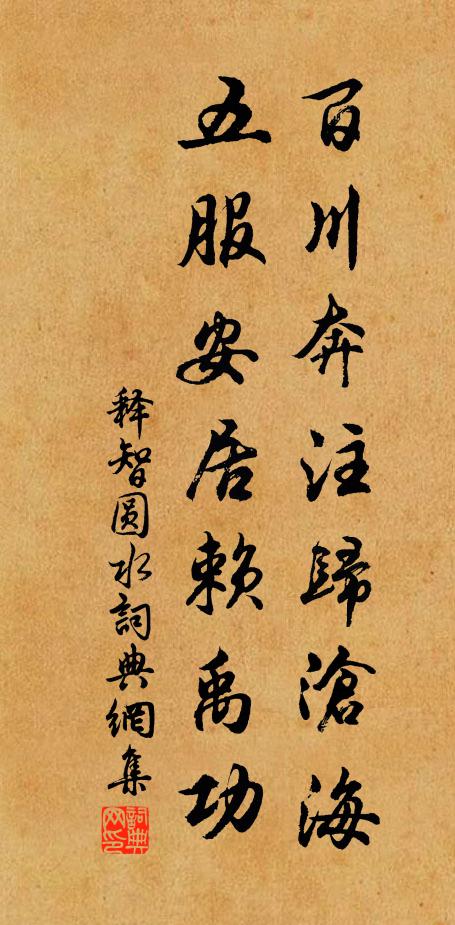 百川奔注歸滄海
五服安居賴禹功
释智圆水詞典網集
詞典網印